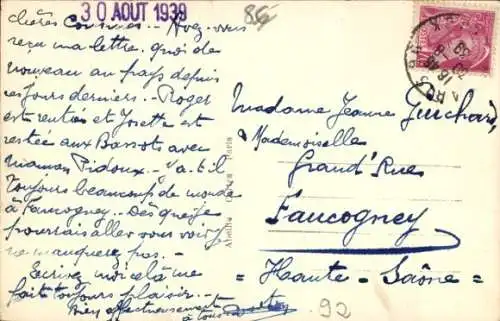 30 AOUT 1939
86
chères cousines -- Avez-vous
reçu ma lettre. quoi de
nouveau au pays depuis
ces jours derniers -- Roger
est rentré et Josette est
restée aux Bassots avec
maman Pidoux -- Y a-t-il
toujours beaucoup de monde
à Faucogney -- Dès que je
pourrais aller vous voir je
ne manquerez pas. --
Ecrivez moi celà me
fait toujours plaisir --
Bien affectueusement
à tous
Paris
Madame Jeanne Guichard
& Mademoiselle
Grand' Rue
Faucogney
= Haute-Saône =
92